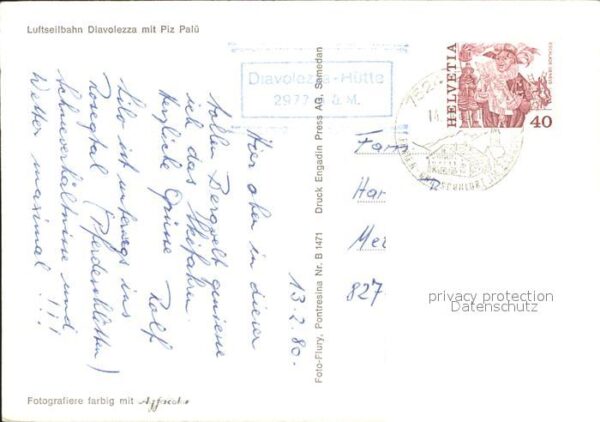 Luftseilbahn Diavolezza mit Piz Palü
Diavolezza-Hütte
2977 ü. M.
HELVETIA
40
13.2.80.
Hier oben in dieser
tollen Bergwelt geniesse
ich das Skifahren.
Herzliche Grüsse Rolf
Lilo ist unterwegs ins
Rosegtal (Pferdeschlitten)
Schneeverhältnisse und
Wetter maximal!!!
Foto-Flury, Pontresina Nr. B 1471 Druck Engadin Press AG, Samedan
Fam
Har
Mer
827
privacy protection
Datenschutz
Fotografiere farbig mit